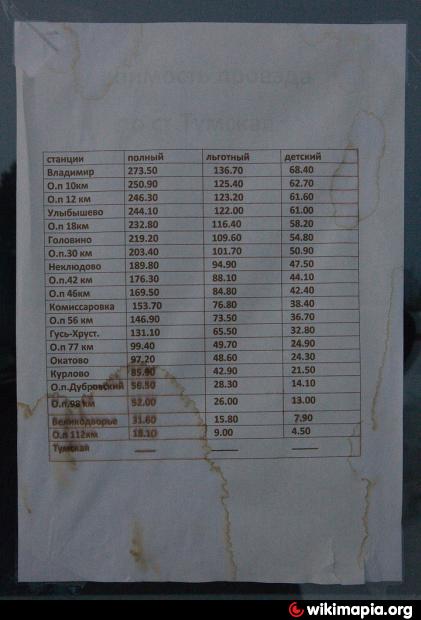 стоимость проезда
до ст Тумская
станции полный льготный детский
Владимир 273.50 136.70 68.40
О.п 10км 250.90 125.40 62.70
О.п 12 км 246.30 123.20 61.60
Улыбышево 244.10 122.00 61.00
О.п 18км 232.80 116.40 58.20
Головино 219.20 109.60 54.80
О.п.30 км 203.40 101.70 50.90
Неклюдово 189.80 94.90 47.50
О.п.42 км 176.30 88.10 44.10
О.п 46км 169.50 84.80 42.40
Комиссаровка 153.70 76.80 38.40
О.п 56 км 146.90 73.50 36.70
Гусь-Хруст. 131.10 65.50 32.80
О.п 77 км 99.40 49.70 24.90
Окатово 97.20 48.60 24.30
Курлово 85.90 42.90 21.50
О.п.Дубровский 56.50 28.30 14.10
О.п.98 км 52.00 26.00 13.00
Великодворье 31.60 15.80 7.90
О.п 112км 18.10 9.00 4.50
Тумская — — —
wikimapia.org